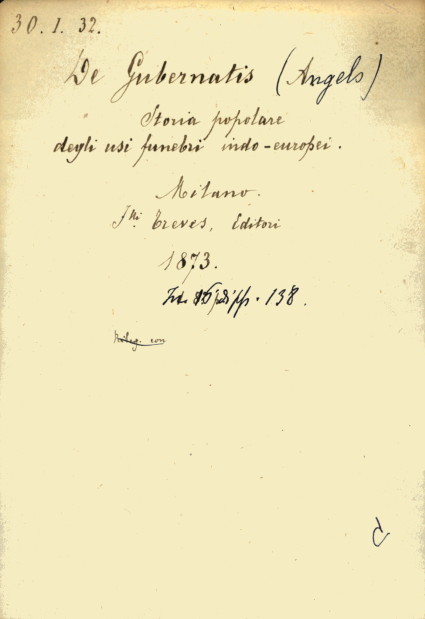 30. 1. 32.
De Gubernatis (Angelo)
Storia popolare
degli usi funebri indo-europei.
Milano.
F.lli Treves, Editori
1873.
pp. 138.
Rileg. con